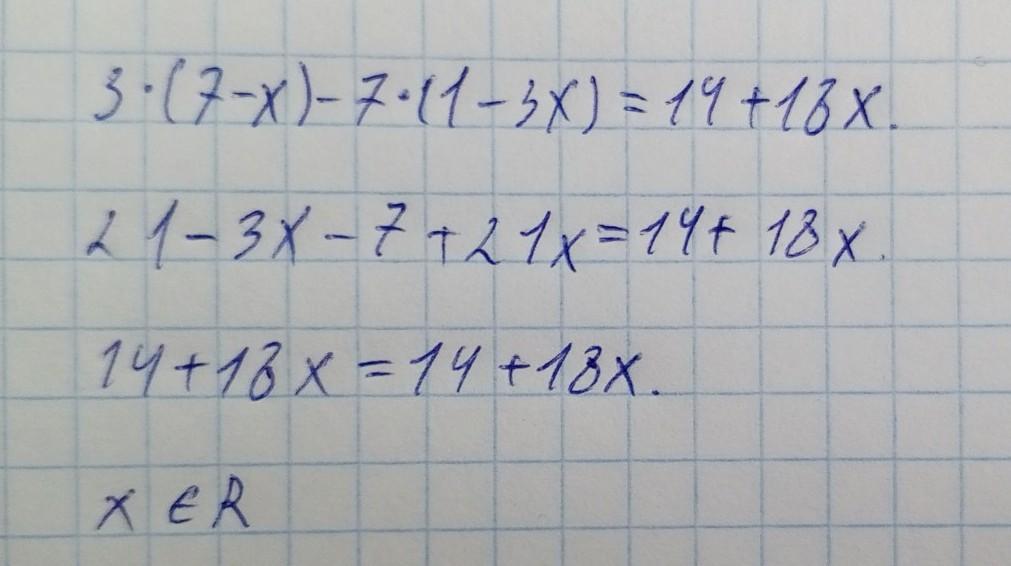 3·(7-x)-7·(1-3x)=14+18x.
21-3x-7+21x=14+18x.
14+18x=14+18x.
x∈R